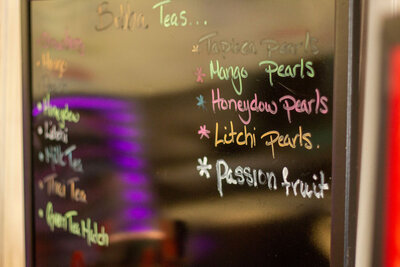 Teas...
Mango
Honeydew
Litchi
Milk Tea
Thai Tea
Green Tea Match
Tapioca Pearls
Mango Pearls
Honeydow Pearls
Litchi Pearls.
Passion fruit